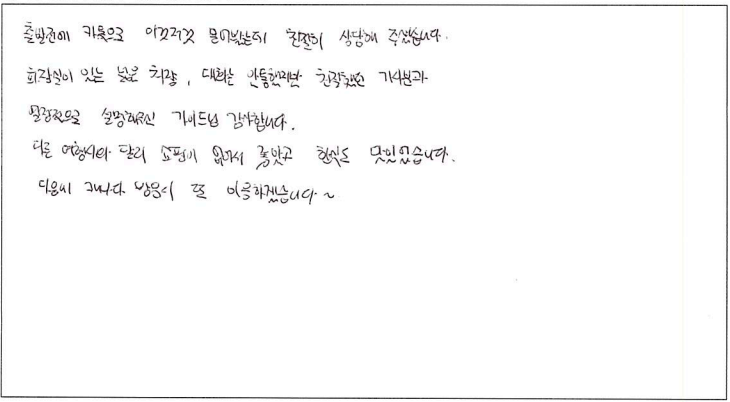 출발전에 카톡으로 이것저것 물어봤는데 친절히 상담해 주셨습니다.
화장실이 있는 넓은 차량, 대화는 안통했지만 친절했던 기사분과
열정적으로 설명해주신 가이드님 감사합니다.
다른 여행사와 달리 쇼핑이 없어서 좋았고 현식도 맛있었습니다.
다음에 캐나다 방문시 또 이용하겠습니다~